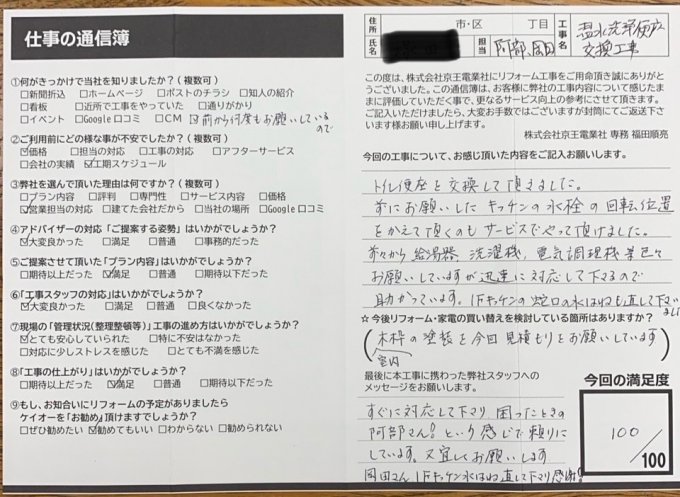 仕事の通信簿
①何がきっかけで当社を知りましたか?(複数可)
□新聞折込 □ホームページ □ポストのチラシ □知人の紹介
□看板 □近所で工事をやっていた □通りがかり
□イベント □Google口コミ □CM ☑前から何度もお願いしているので
②ご利用前にどの様な事が不安でしたか?(複数可)
☑価格 □担当の対応 □工事の対応 □アフターサービス
□会社の実績 ☑工期スケジュール
③弊社を選んで頂いた理由は何ですか?(複数可)
□プラン内容 □評判 □専門性 □サービス内容 □価格
☑営業担当の対応 □建てた会社だから □当社の場所 □Google口コミ
④アドバイザーの対応「ご提案する姿勢」はいかがでしょうか?
☑大変良かった □満足 □普通 □事務的だった
⑤ご提案させて頂いた「プラン内容」はいかがでしょうか?
□期待以上だった ☑満足 □普通 □期待以下だった
⑥「工事スタッフの対応」はいかがでしょうか?
☑大変良かった □満足 □普通 □良くなかった
⑦現場の「管理状況(整理整頓等)」工事の進め方はいかがでしょうか?
☑とても安心していられた □特に不安はなかった
□対応に少しストレスを感じた □とても不満を感じた
⑧「工事の仕上がり」はいかがでしょうか?
□期待以上だった ☑満足 □普通 □期待以下だった
⑨もし、お知合いにリフォームの予定がありましたら
ケイオーを「お勧め」頂けますでしょうか?
□ぜひ勧めたい ☑勧めてもいい □わからない □勧められない
住所 市・区 丁目
氏名 担当 阿部、岡田
工事名 温水洗浄便座交換工事
この度は、株式会社京王電業社にリフォーム工事をご用命頂き誠にありがと
うございました。この通信簿は、お客様に弊社の工事内容について感じたま
まに評価していただく事で、更なるサービス向上の参考にさせて頂きます。
ご記入いただけましたら、大変お手数ではございますが封筒にてご返送下さ
います様お願い申し上げます。
株式会社京王電業社 専務 福田順亮
今回の工事について、お感じ頂いた内容をご記入お願いします。
トイレ便座を交換して頂きました。
前にお願いしたキッチンの水栓の回転位置
をかえて頂くのもサービスでやって頂けました。
前々から給湯器、洗濯機、電気調理機等色々
お願いしていますが迅速に対応して下さるので
助かっています。1Fキッチンの蛇口の水はねも直して下さいました
☆今後リフォーム・家電の買い替えを検討している箇所はありますか?
(木枠の塗装を今回見積もりをお願いしています)
室内
最後に本工事に携わった弊社スタッフへの
メッセージをお願いします。
すぐに対応して下さり困ったときの
阿部さん!という感じで頼りに
しています。又宜しくお願いします
岡田さん 1Fキッチン水はね直して下さり感謝!
今回の満足度
100
/100